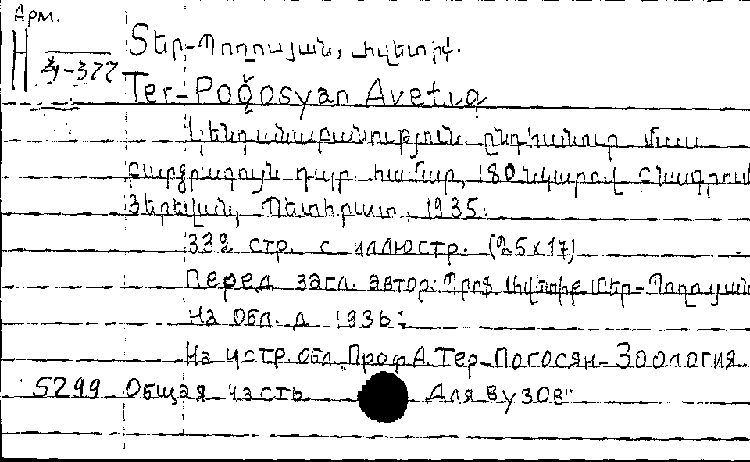 Арм.
Տեր-Պողոսյան, Ավետիք.
Н 34-377
Ter-Poğosyan Avetıq
Կենդանաբանություն ընդհանուր մաս
բարձրագույն դպր. համար, 180 նկարով բնագրում
Յերեվան, Պետհրատ, 1935.
332 стр. с иллюстр. (25x17)
Перед загл. автор: Պրոֆ Ավետիք Տեր-Պողոսյան
На обл. д 1936:
На цстр. обл. Проф А. Тер-Погосян-Зоология
5299 Общая часть Для вузов"